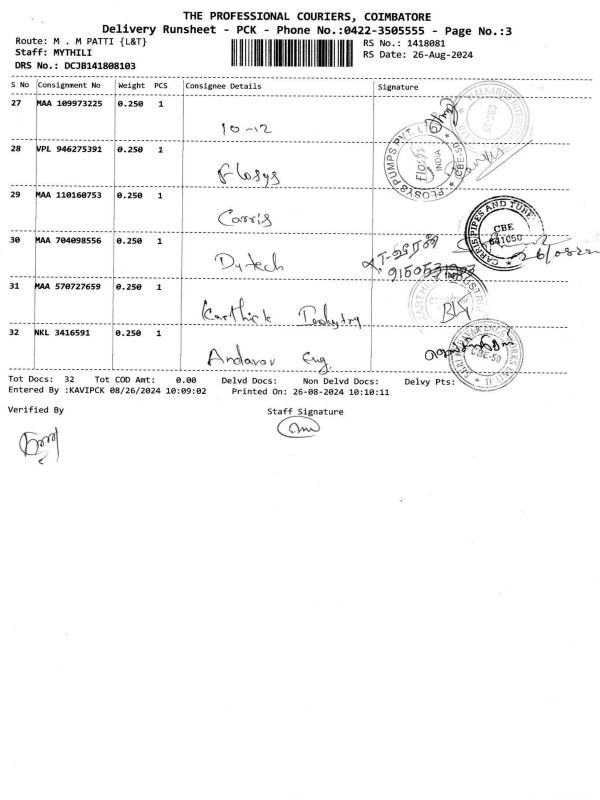 THE PROFESSIONAL COURIERS, COIMBATORE
Delivery Runsheet - PCK - Phone No.:0422-3505555 - Page No.:3
Route: M . M PATTI {L&T}
RS No.: 1418081
Staff: MYTHILI
RS Date: 26-Aug-2024
DRS No.: DCJB141808103
S No Consignment No Weight PCS Consignee Details Signature
27 MAA 109973225 0.250 1
10-12
28 VPL 946275391 0.250 1
Flosys
FLOSYS PUMPS PVT. LTD
Flosys
INDIA
CBE-50
29 MAA 110160753 0.250 1
Carris
CARRIS PIPES AND TUBE
CBE
641050
30 MAA 704098556 0.250 1
Dytech
26/08/24
31 MAA 570727659 0.250 1
Karthick
32 NKL 3416591 0.250 1
Andavar Eng.
CBE-50
Tot Docs: 32 Tot COD Amt: 0.00 Delvd Docs: Non Delvd Docs: Delvy Pts:
Entered By :KAVIPCK 08/26/2024 10:09:02 Printed On: 26-08-2024 10:10:11
Verified By Staff Signature